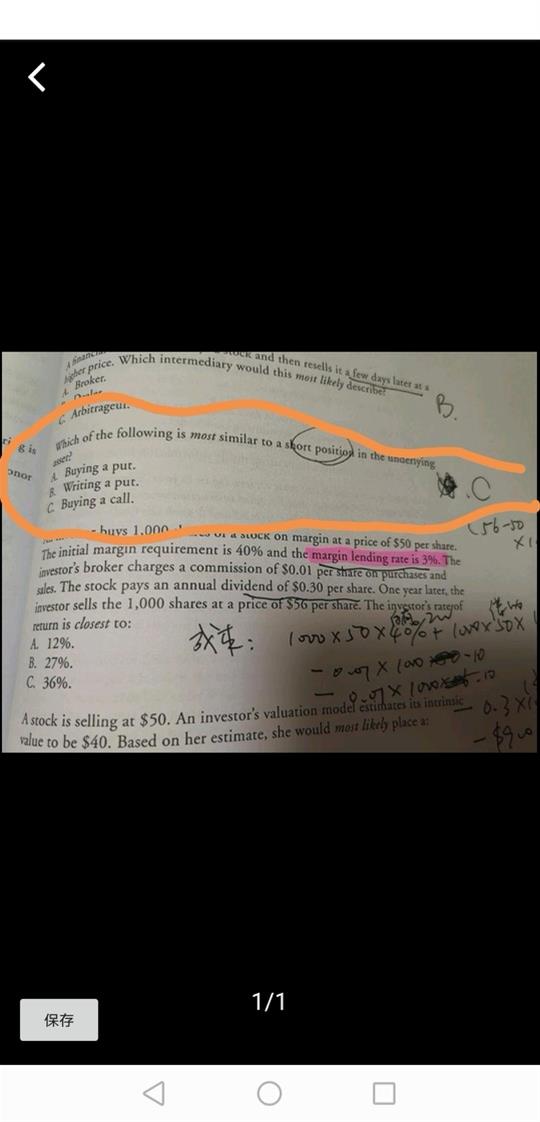 stock and then resells it a few days later at a
higher price. Which intermediary would this most likely describe?
A. Broker.
B.
C. Arbitrageur.
B. Dealer.
g is
Which of the following is most similar to a short position in the underlying
asset?
onor
A. Buying a put.
B. Writing a put.
.C
C. Buying a call.
(56-50
buys 1,000 of a stock on margin at a price of $50 per share.
The initial margin requirement is 40% and the margin lending rate is 3%. The
investor's broker charges a commission of $0.01 per share on purchases and
sales. The stock pays an annual dividend of $0.30 per share. One year later, the
investor sells the 1,000 shares at a price of $56 per share. The investor's rate of
return is closest to:
A. 12%.
B. 27%.
C. 36%.
1000×50×40%+1000×50×
-0.01×1000 -10
-0.01×1000 -10
-0.3×1
-$900
A stock is selling at $50. An investor's valuation model estimates its intrinsic
value to be $40. Based on her estimate, she would most likely place a:
1/1
保存